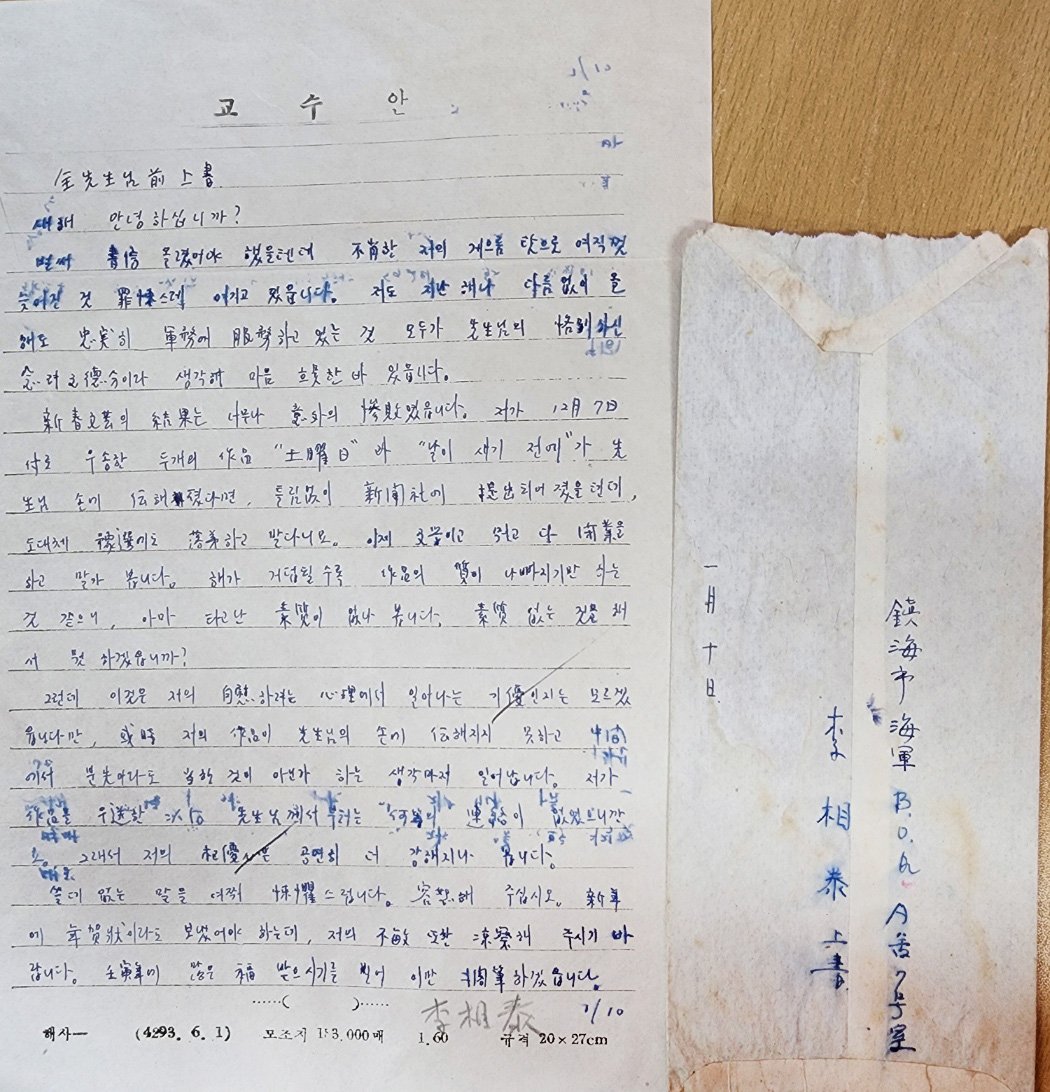 교 수 안
金先生님 前 上書
새해 안녕하십니까?
벌써 書信 올렸어야 했을텐데 不肖한 저의 게으름 탓으로 여직껏
늦어진 것 罪悚스레 여기고 있읍니다. 저도 지난 해나 다름없이 올
해도 忠実히 軍務에 服務하고 있는 것 모두가 先生님의 恪別하신
念려之德分이라 생각해 마음 흐뭇한 바 있읍니다.
新春文芸의 結果는 너무나 意外의 慘敗였읍니다. 저가 12月 7日
付로 우송한 두개의 作品 "土曜日" 과 "날이 새기 전에"가 先
生님 손에 伝해졌다면, 틀림없이 新聞社에 提出되어 졌을텐데,
도대체 豫選에도 落第하고 말다니요. 이제 文学이고 뭐고 다 闭業을
하고 말가 봅니다. 해가 거듭될수록 作品의 質이 나빠지기만 하는
것 같으니, 아마 타고난 素質이 없나 봅니다. 素質 없는 것을 해
서 뭣 하겠읍니까?
그런데 이것은 저의 自慰하려는 心理에서 일어나는 기優인지는 모르겠
읍니다만, 或時 저의 作品이 先生님의 손에 伝해지지 못하고 中间
에서 분失이라도 당한 것이 아닌가 하는 생각마저 일어납니다. 저가
作品을 우送한 以后 先生님께서 부터는 何等의 連絡이 없었으니깐
요. 그래서 저의 杞優心은 공연히 더 강해지나 봅니다.
쓸데 없는 말을 여쭈어 悚懼스럽니다. 容恕해 주십시오. 新年
에 年賀狀이라도 보냈어야 하는데, 저의 不敏 또한 諒察해 주시기 바
랍니다. 壬寅年에 많은 福 받으시기를 빌어 이만 擱筆하겠읍니다.
……( )……
李相泰 1/10
해사— (4293. 6. 1) 모조지 153.000매 1.60 규격 20×27cm
鎮海市 海軍 B.O.Q. A舍 7号室
李 相 泰 上書
一月 十日